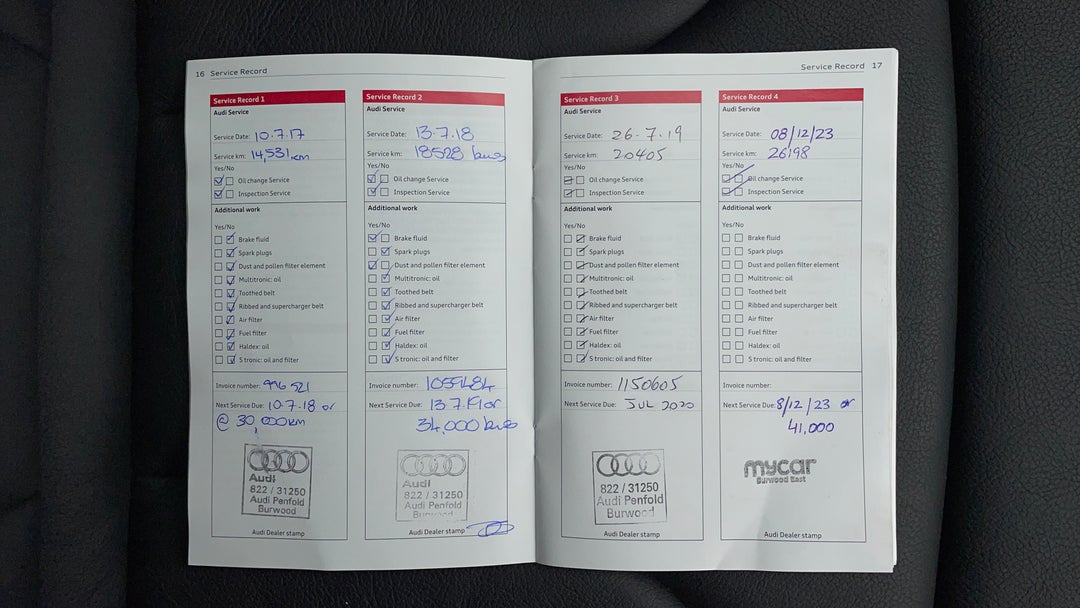 16 Service Record
Service Record 1
Audi Service
Service Date: 10.7.17
Service km: 14,531 km
Yes/No
Oil change Service
Inspection Service
Additional work
Yes/No
Brake fluid
Spark plugs
Dust and pollen filter element
Multitronic: oil
Toothed belt
Ribbed and supercharger belt
Air filter
Fuel filter
Haldex: oil
S tronic: oil and filter
Invoice number: 996 521
Next Service Due: 10.7.18 or
@ 30 000km
Audi
822 / 31250
Audi Penfold
Burwood
Audi Dealer stamp
Service Record 2
Audi Service
Service Date: 13.7.18
Service km: 18528 kms
Yes/No
Oil change Service
Inspection Service
Additional work
Yes/No
Brake fluid
Spark plugs
Dust and pollen filter element
Multitronic: oil
Toothed belt
Ribbed and supercharger belt
Air filter
Fuel filter
Haldex: oil
S tronic: oil and filter
Invoice number: 1059484
Next Service Due: 13.7.19 or
34,000 kms
Audi
822 / 31250
Audi Penfold
Burwood
Audi Dealer stamp
Service Record 17
Service Record 3
Audi Service
Service Date: 26-7.19
Service km: 20405
Yes/No
Oil change Service
Inspection Service
Additional work
Yes/No
Brake fluid
Spark plugs
Dust and pollen filter element
Multitronic: oil
Toothed belt
Ribbed and supercharger belt
Air filter
Fuel filter
Haldex: oil
S tronic: oil and filter
Invoice number: 1150605
Next Service Due: JUL 2020
822 / 31250
Audi Penfold
Burwood
Audi Dealer stamp
Service Record 4
Audi Service
Service Date: 08/12/23
Service km: 26198
Yes/No
Oil change Service
Inspection Service
Additional work
Yes/No
Brake fluid
Spark plugs
Dust and pollen filter element
Multitronic: oil
Toothed belt
Ribbed and supercharger belt
Air filter
Fuel filter
Haldex: oil
S tronic: oil and filter
Invoice number:
Next Service Due: 8/12/23 or
41,000
mycar
Burwood East
Audi Dealer stamp